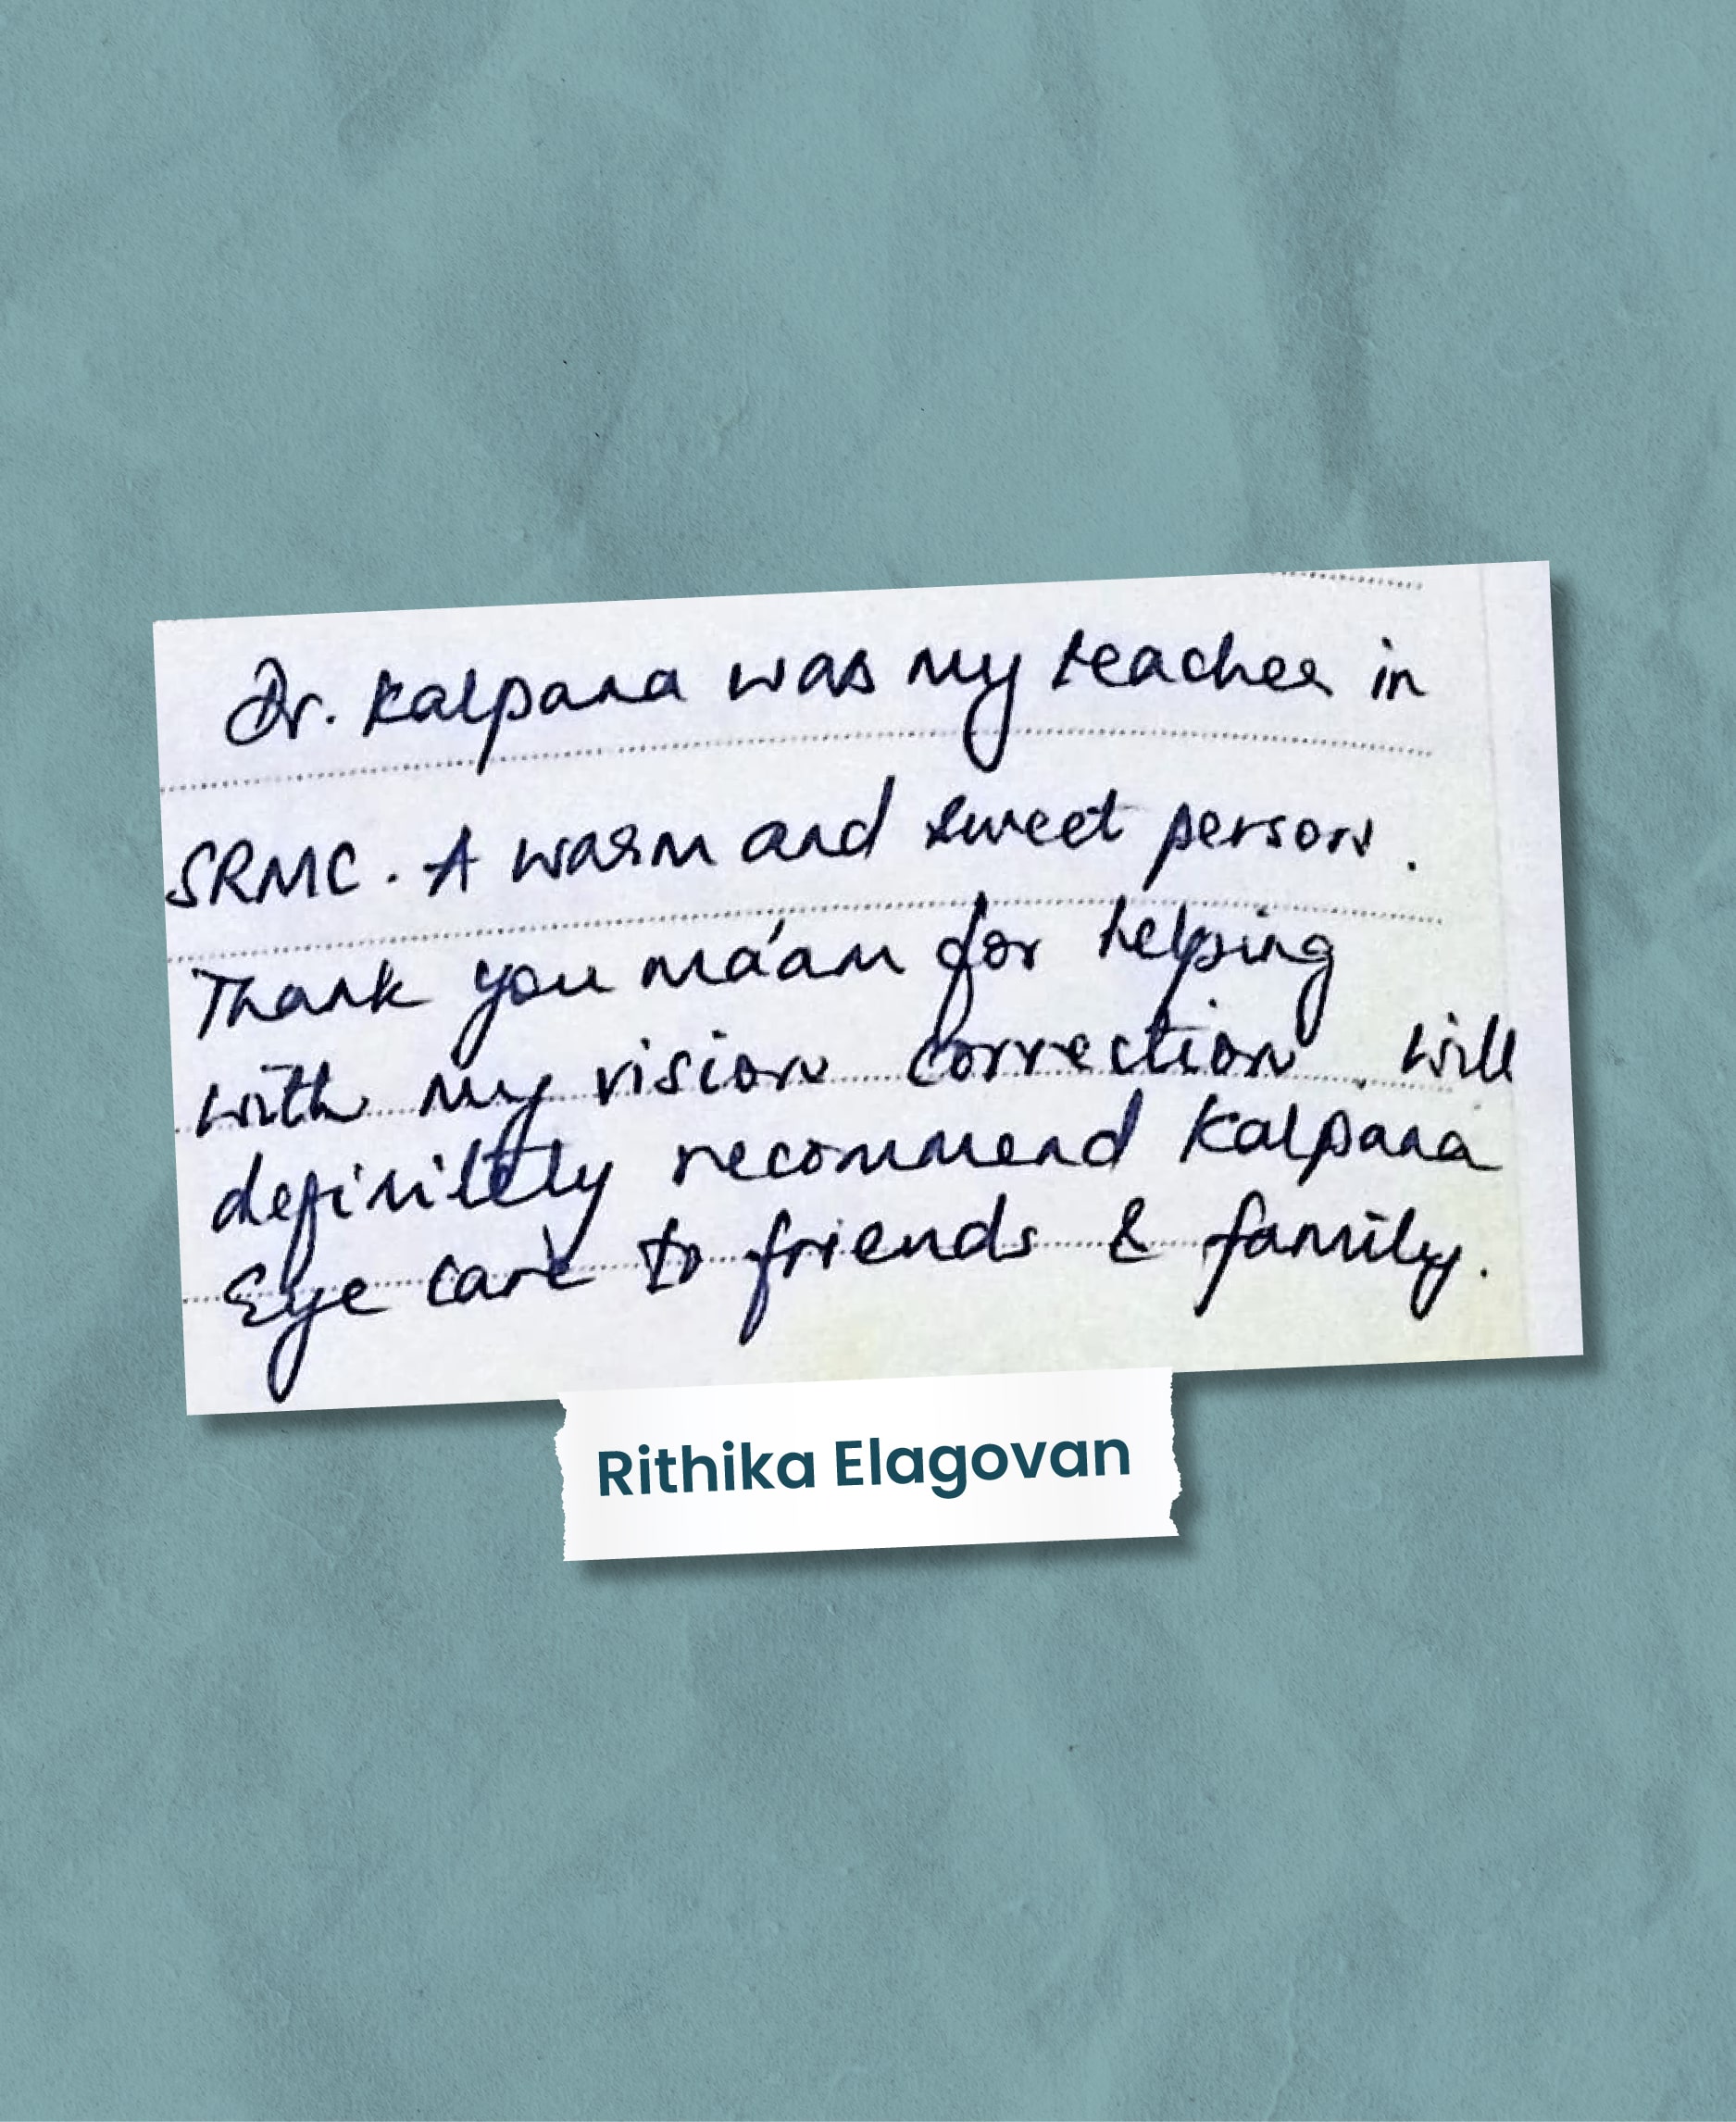 Dr. Kalpana was my teacher in
SRMC. A warm and sweet person.
Thank you ma'am for helping
with my vision correction. will
definiltly recommend Kalpana
Eye care to friends & family.
Rithika Elagovan